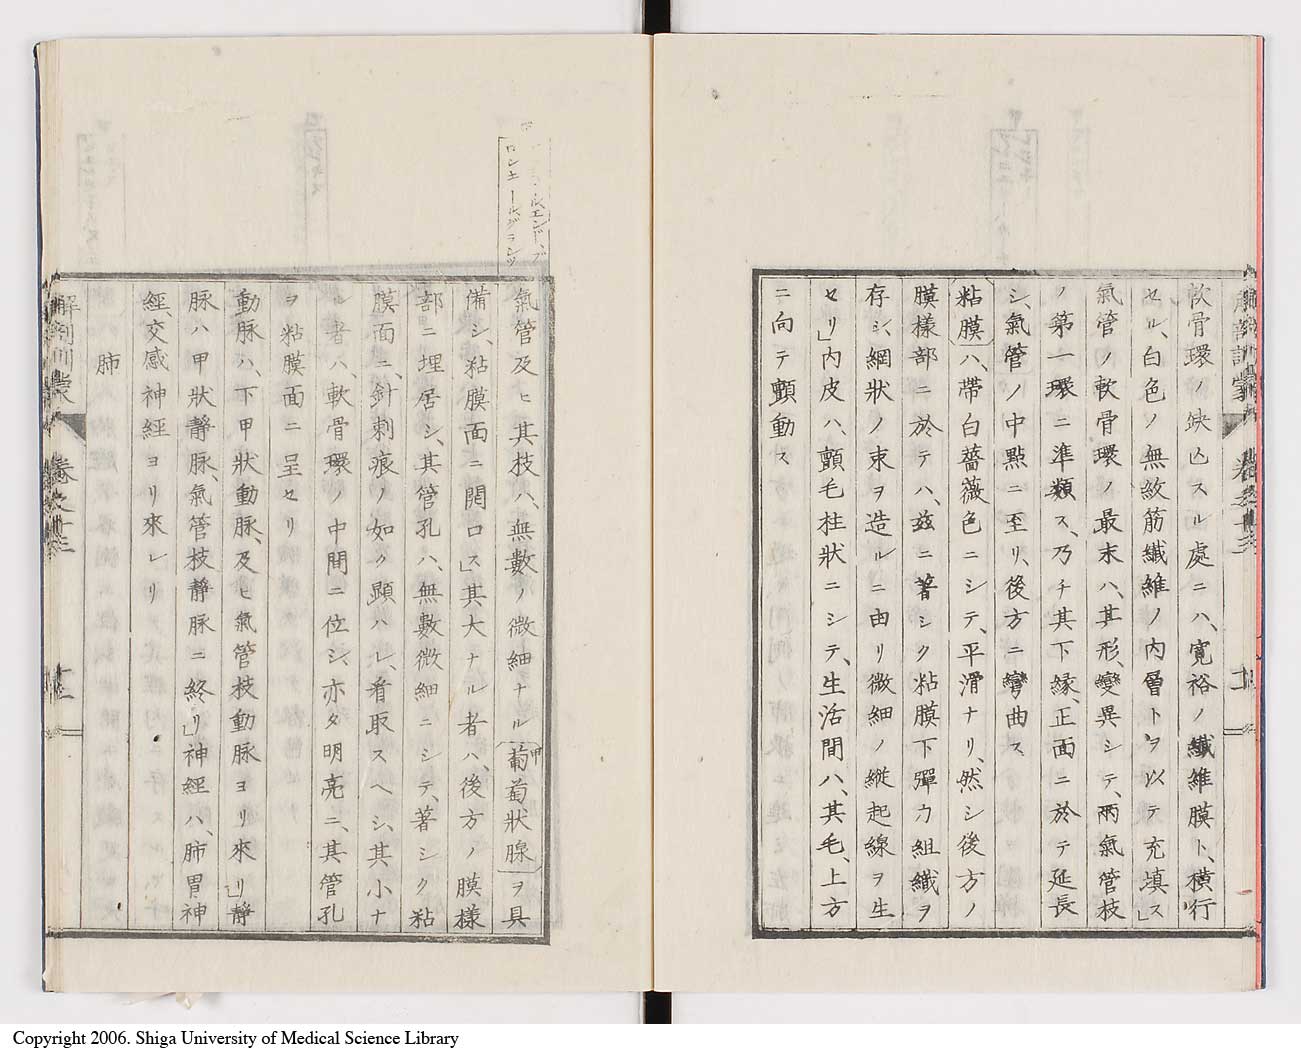 軟骨環ノ缺凵スル處ニハ、寛裕ノ纎維膜ト、橫行
セル、白色ノ無紋筋纎維ノ内層トヲ以テ充填ス」
氣管ノ軟骨環ノ最末ハ、其形、變異シテ、兩氣管枝
ノ第一環ニ準類ス、乃チ其下緣、正面ニ於テ延長
シ、氣管ノ中點ニ至リ、後方ニ彎曲ス
粘膜ハ、帶白薔薇色ニシテ、平滑ナリ、然シ後方ノ
膜樣部ニ於テハ、玆ニ著シク粘膜下彈力組織ヲ
存シ、綱狀ノ束ヲ造ルニ由リ微細ノ縱起線ヲ生
セリ」内皮ハ、顫毛柱狀ニシテ、生活間ハ、其毛、上方
ニ向テ顫動ス
解剖訓蒙
卷之十三
ルエンド、ブ
ロンエールグランツ
氣管及ヒ其枝ハ、無數ノ微細ナル葡萄狀腺ヲ具
甲
備シ、粘膜面ニ開口ス」其大ナル者ハ、後方ノ膜樣
部ニ埋居シ、其管孔ハ、無數微細ニシテ、著シク粘
膜面ニ、針刺痕ノ如ク顯ハレ、看取スヘシ、其小ナ
ル者ハ、軟骨環ノ中間ニ位シ、亦タ明亮ニ、其管孔
ヲ粘膜面ニ呈セリ
動脉ハ、下甲狀動脉、及ヒ氣管枝動脉ヨリ來リ」靜
脉ハ甲狀靜脉、氣管枝靜脉ニ終リ」神經ハ、肺胃神
經、交感神經ヨリ來レリ
肺
解剖訓蒙
卷之十三
十三
Copyright 2006. Shiga University of Medical Science Library